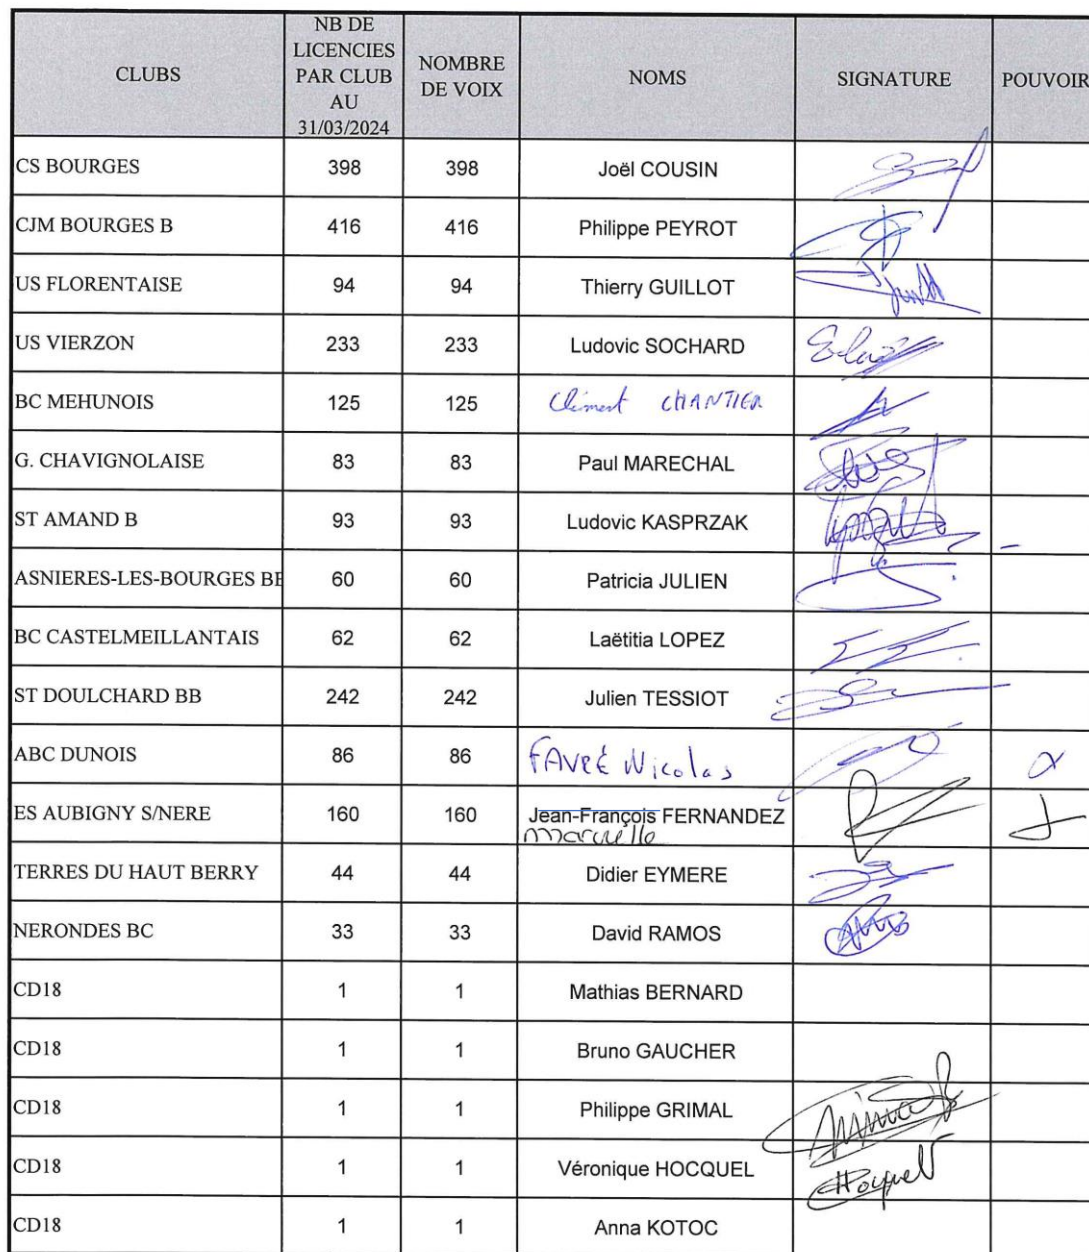 CLUBS NB DE LICENCIES PAR CLUB AU 31/03/2024 NOMBRE DE VOIX NOMS SIGNATURE POUVOIR
CS BOURGES 398 398 Joël COUSIN
CJM BOURGES B 416 416 Philippe PEYROT
US FLORENTAISE 94 94 Thierry GUILLOT
US VIERZON 233 233 Ludovic SOCHARD
BC MEHUNOIS 125 125 Clément CHANTIER
G. CHAVIGNOLAISE 83 83 Paul MARECHAL
ST AMAND B 93 93 Ludovic KASPRZAK
ASNIERES-LES-BOURGES 60 60 Patricia JULIEN
BC CASTELMEILLANTAIS 62 62 Laëtitia LOPEZ
ST DOULCHARD BB 242 242 Julien TESSIOT
ABC DUNOIS 86 86 FAVRÉ Nicolas
ES AUBIGNY S/NERE 160 160 Jean-François FERNANDEZ
TERRES DU HAUT BERRY 44 44 Didier EYMERE
NERONDES BC 33 33 David RAMOS
CD18 1 1 Mathias BERNARD
CD18 1 1 Bruno GAUCHER
CD18 1 1 Philippe GRIMAL
CD18 1 1 Véronique HOCQUEL Hocquel
CD18 1 1 Anna KOTOC